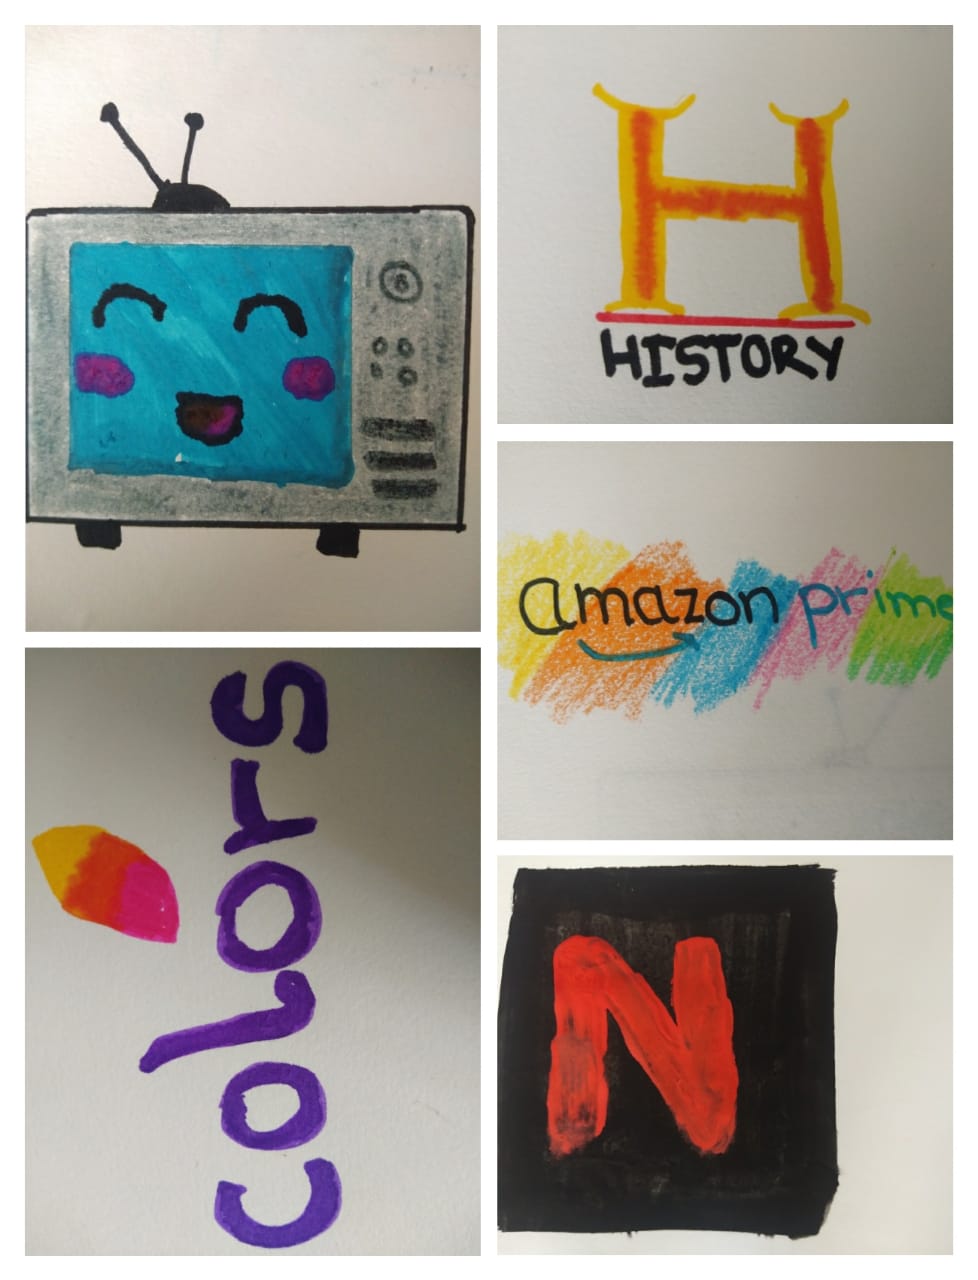 H
HISTORY
amazon prime
colors
N